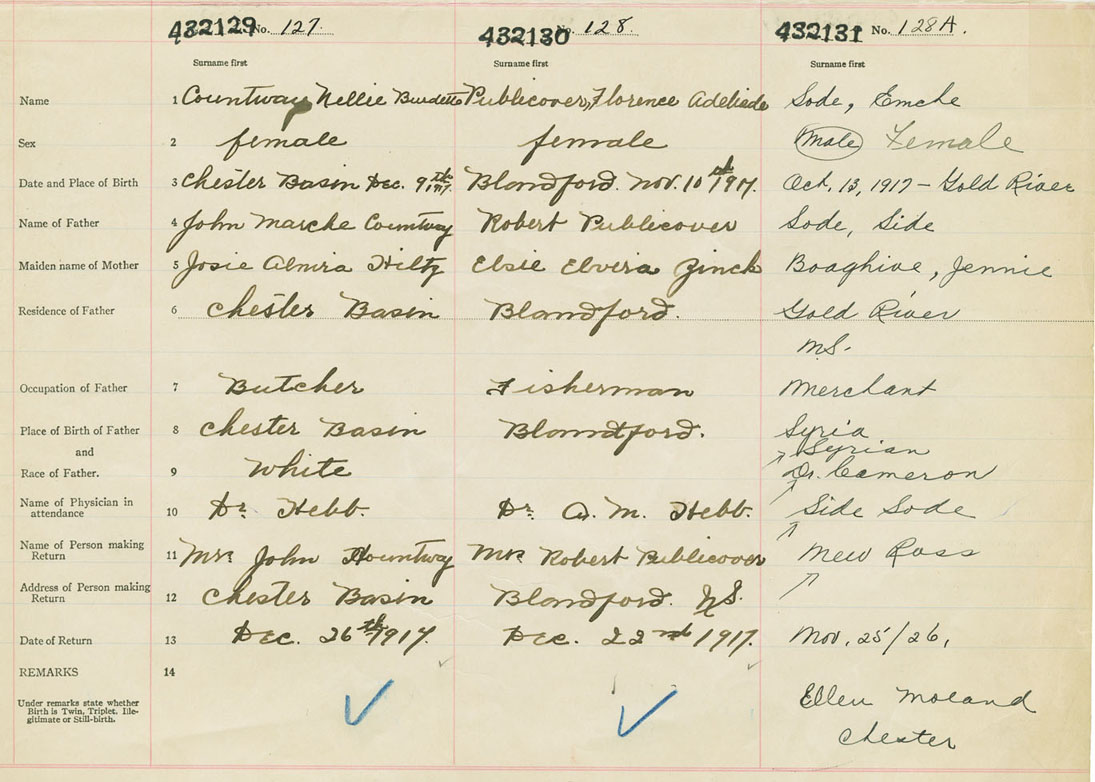 432129 No. 127 432130 No. 128. 432131 No. 128A.
Surname first Surname first Surname first
Name 1 Countway Nellie Burdette Publicover, Florence Adeliade Sode, Emche
Sex 2 female female Male Female
Date and Place of Birth 3 Chester Basin Dec. 9th, 1917. Blandford. Nov. 10th 1917. Oct. 13, 1917 – Gold River
Name of Father 4 John Marche Countway Robert Publicover Sode, Side
Maiden name of Mother 5 Josie Almira Hiltz Elsie Elvira Zinck Boaghive, Jennie
Residence of Father 6 Chester Basin Blandford. Gold River
N.S.
Occupation of Father 7 Butcher Fisherman Merchant
Place of Birth of Father 8 Chester Basin Blandford. Syria
and Syrian
Race of Father. 9 White Dr. Cameron
Name of Physician in
attendance 10 Dr. Hebb. Dr. A. M. Hebb. Side Sode
Name of Person making
Return 11 Mrs John Countway Mrs Robert Publicover New Ross
Address of Person making
Return 12 Chester Basin Blandford. N.S.
Date of Return 13 Dec. 26th 1917. Dec. 22nd 1917. Nov. 25/26,
REMARKS 14
Under remarks state whether
Birth is Twin, Triplet, Ille-
gitimate or Still-birth.
Ellen Moland
Chester